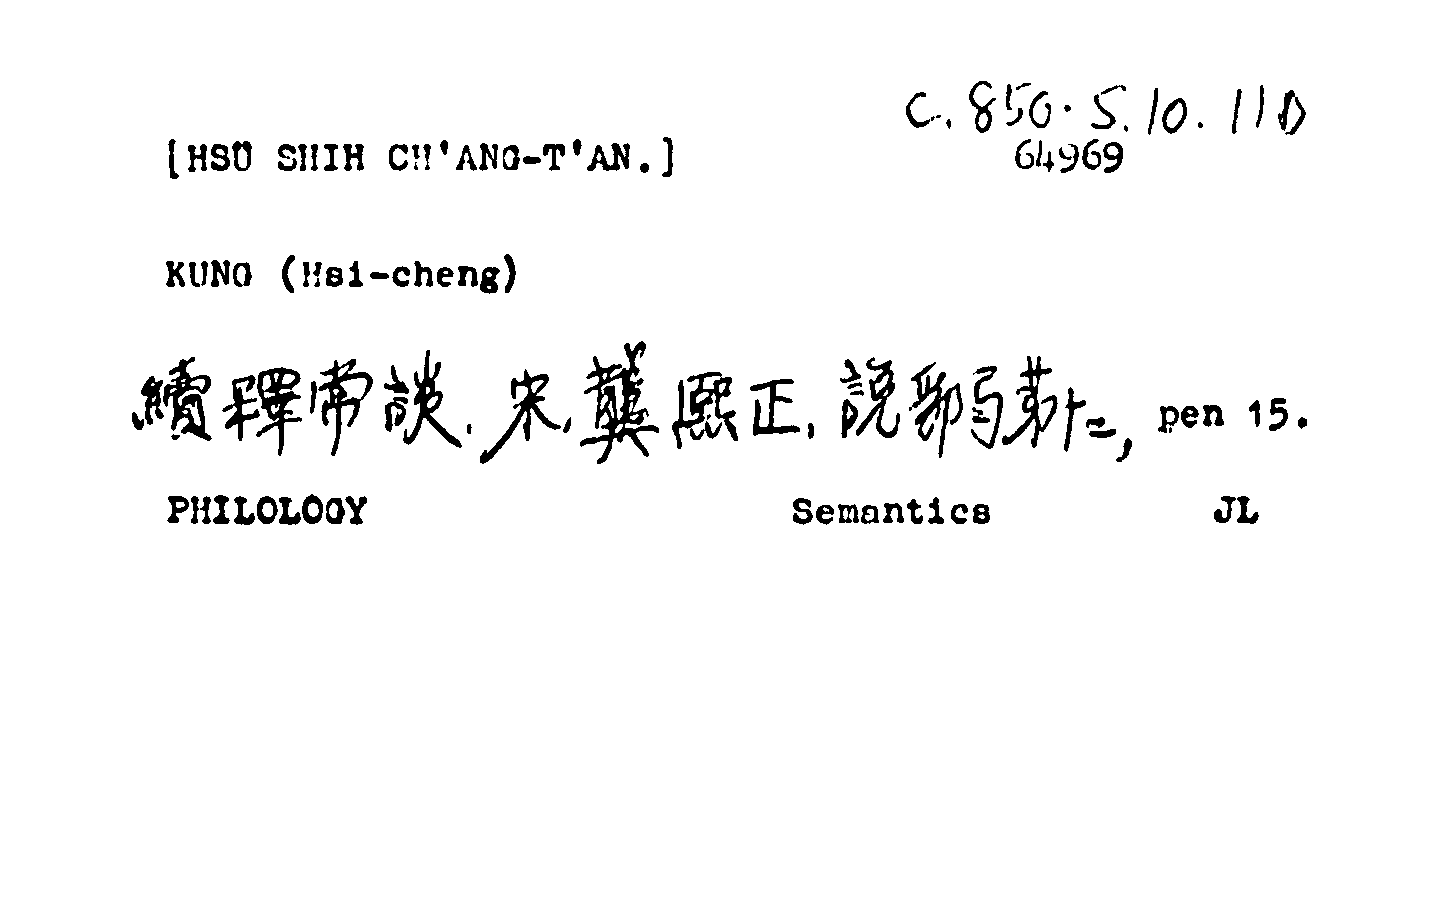 C.850.S.10.11D
[HSÜ SHIH CH'ANG-T'AN.]
64969
KUNG (Hsi-cheng)
續釋常談. 宋. 龔熙正. 說郛弓第十二, pen 15.
PHILOLOGY Semantics JL